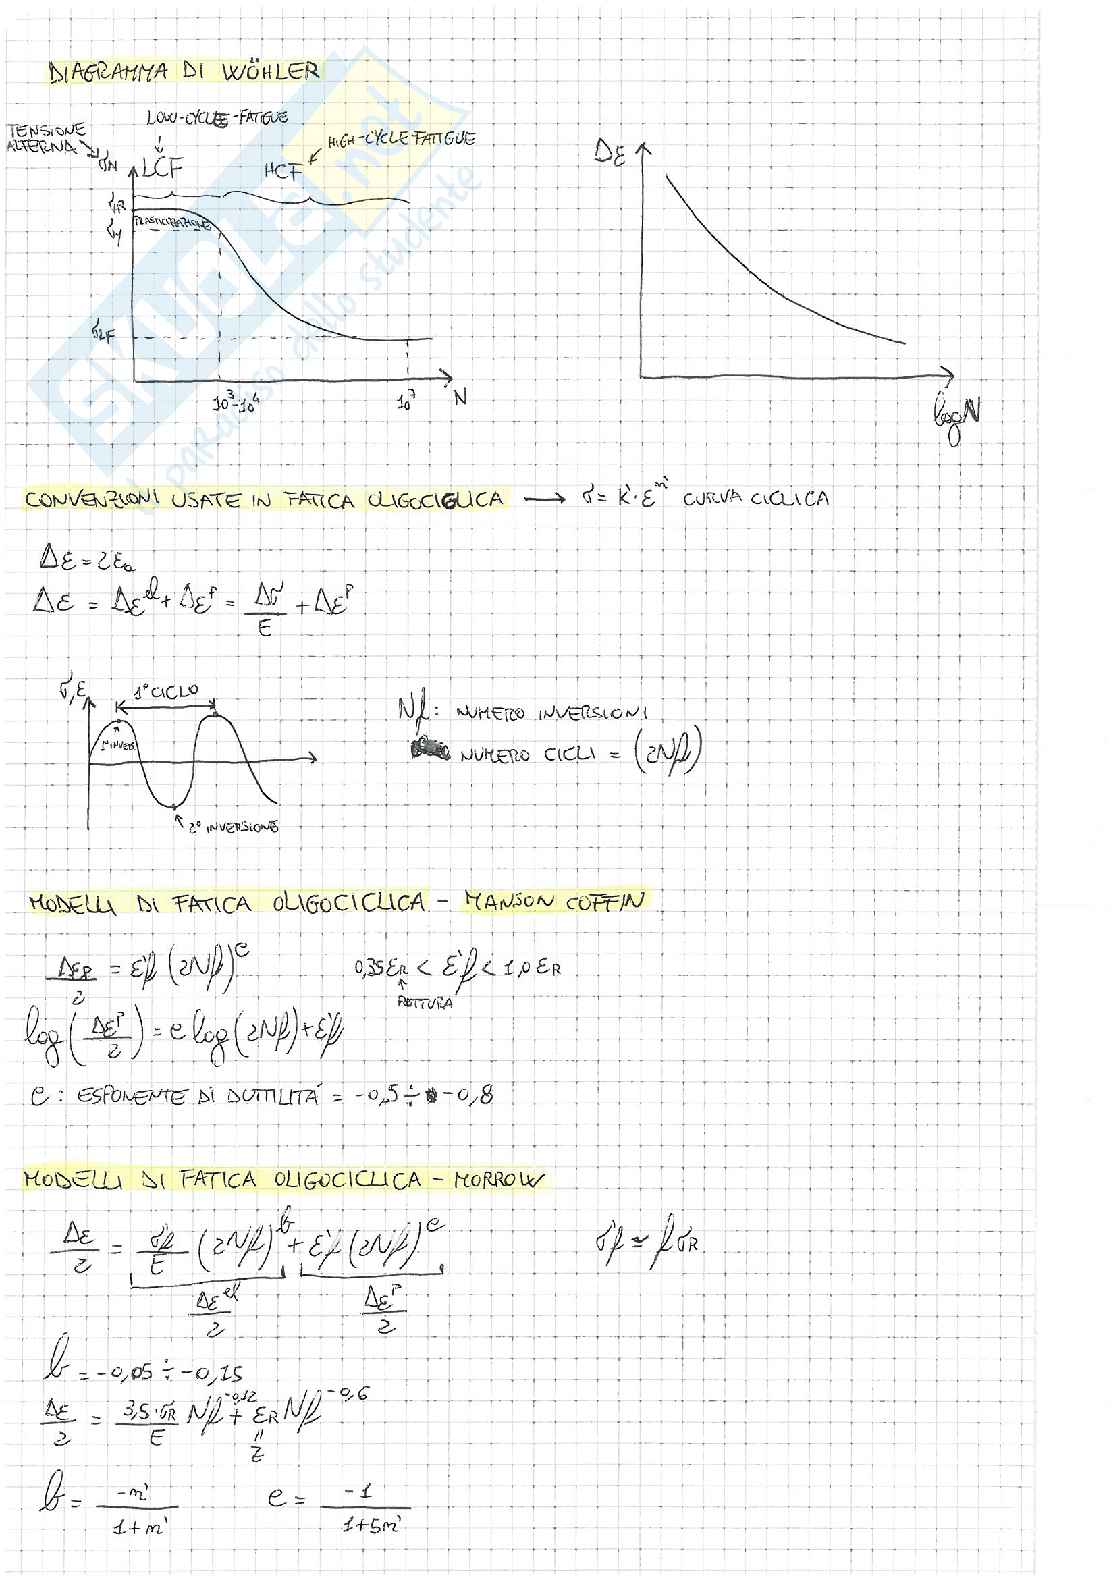 DIAGRAMMA DI WÖHLER
LOW-CYCLE-FATIGUE
TENSIONE
ALTERNA
HIGH-CYCLE-FATIGUE
σN
LCF
HCF
Δε
σR
σy
PLASTICIZZAZIONE
σLF
10³-10⁴
10⁷
N
log N
CONVENZIONI USATE IN FATICA OLIGOCICLICA → σ = K'·ε^n' CURVA CICLICA
Δε = 2εa
Δε = Δε^el + Δε^p = Δσ/E + Δε^p
σ,ε
1° CICLO
1ª INVERS
2° INVERSIONE
Nf: NUMERO INVERSIONI
NUMERO CICLI = (2Nf)
MODELLI DI FATICA OLIGOCICLICA - MANSON COFFIN
Δεp/2 = ε'f (2Nf)^c
0,35εR < ε'f < 1,0 εR
ROTTURA
log(Δε^p/2) = c log(2Nf) + ε'f
c: ESPONENTE DI DUTTILITÀ = -0,5 ÷ -0,8
MODELLI DI FATICA OLIGOCICLICA - MORROW
Δε/2 = σ'f/E (2Nf)^b + ε'f (2Nf)^c
σ'f ≃ f σR
Δε^el/2
Δε^p/2
b = -0,05 ÷ -0,15
Δε/2 = 3,5·σR/E Nf^-0,12 + εR Nf^-0,6
b = -n'/1+n'
c = -1/1+5n'
SKUOLA.net
il paradiso dello studente